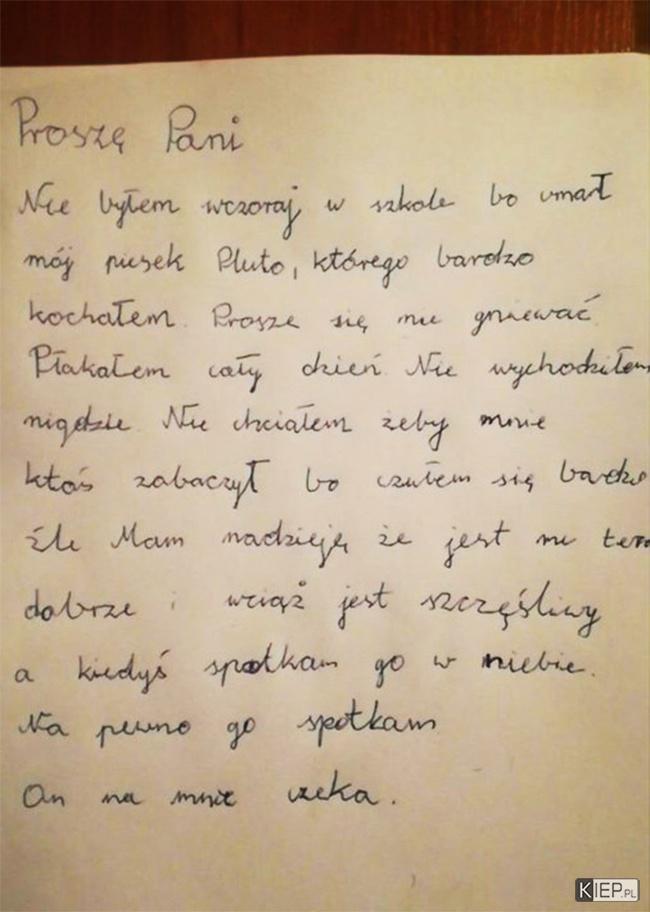 Proszę Pani
Nie byłem wczoraj w szkole bo umarł
mój piesek Pluto, którego bardzo
kochałem. Prosze się nie gniewać.
Płakałem cały dzień. Nie wychodziłem
nigdzie. Nie chciałem żeby mnie
ktoś zobaczył bo czułem się bardzo
źle Mam nadzieję że jest mu tera
dobrze i wciąż jest szczęśliwy
a kiedyś spotkam go w niebie.
Na pewno go spotkam
On na mnie czeka.
KIEP.PL